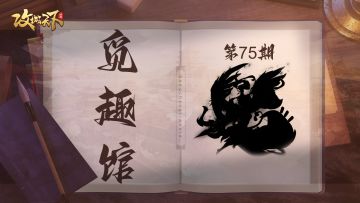 攻城天下
觅趣馆
第75期